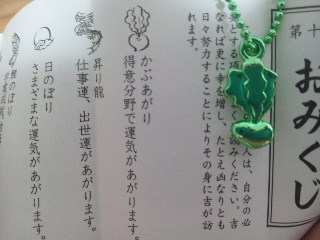 第十
おみくじ
人は、自分の必
読みください。吉
なれば更に幸を増し、たとえ凶なりとも
日々努力することによりその身に吉が訪
れます。
かぶあがり
得意分野で運気があがります。
昇り龍
仕事運、出世運があがります。
日のぼり
さまざまな運気があがります。
鯉のぼり